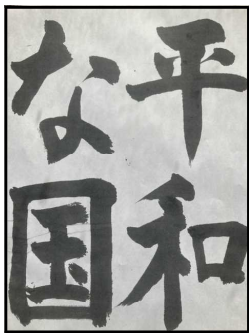 平和
な国